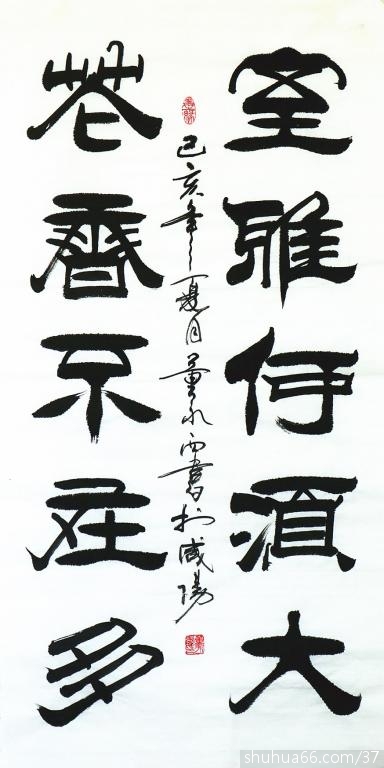 室雅何須大
花香不在多
己亥年夏月董永西書於咸陽
shuhua66.com/37